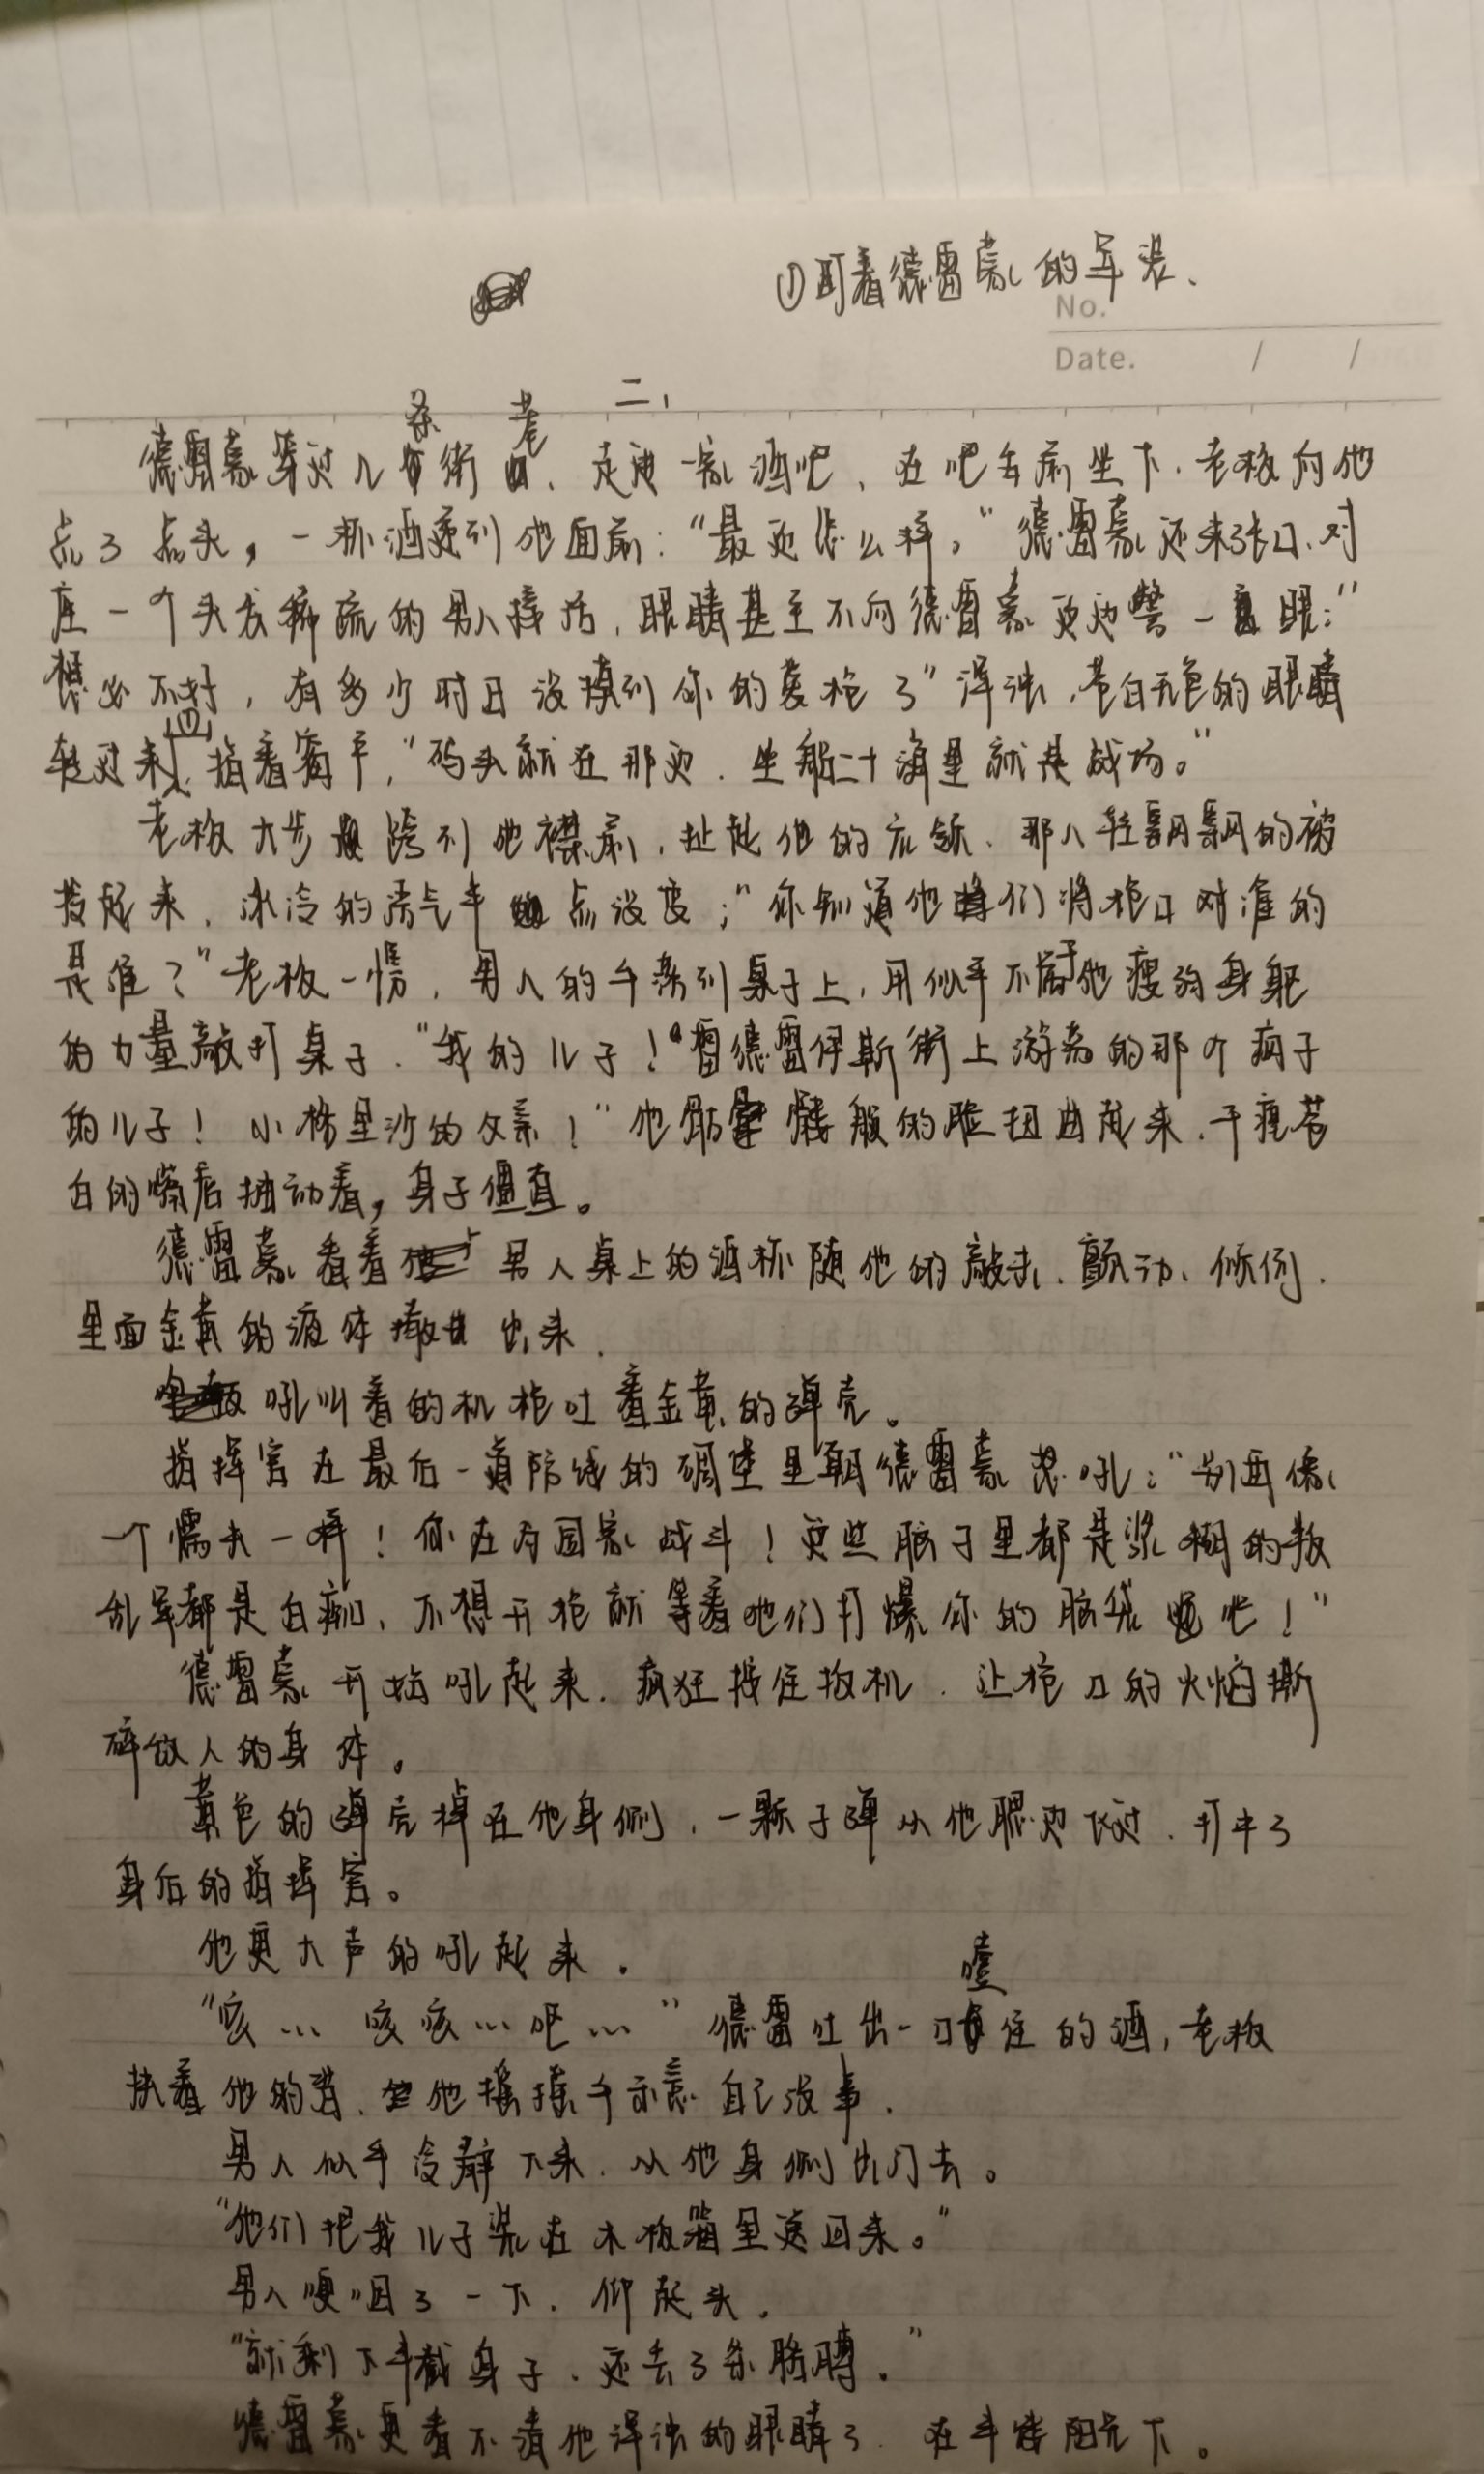 ①盯着德雷蒙的军装、
No.
Date. / /
二、
条 巷
德雷蒙穿过几街、走进一家酒吧、在吧台前坐下.老板向他
点了点头，一杯酒递到他面前：“最近怎么样。”德雷蒙还未张口、对
座一个头发稀疏的男人接话，眼睛甚至不向德雷蒙这边瞥一眼：“
想必不好，有多少时日没摸到你的爱枪了”浑浊，苍白无色的眼睛
①
转过来，指着窗户，“码头就在那边.坐船二十海里就是战场。”
老板大步跨到他襟前，扯起他的衣领、那人轻飘飘的被
拔起来，冰冷的语气半点没变；“你知道他们将枪口对准的
是谁？”老板一愣，男人的手落到桌子上，用似乎不属于他瘦弱身躯
的力量敲打桌子.“我的儿子！德雷伊斯街上游荡的那个疯子
的儿子！小格里沙的父亲！”他骷髅般的脸扭曲起来.干瘪苍
白的嘴唇抽动着，身子僵直。
德雷蒙看着男人桌上的酒杯随他的敲击、颤动、倾倒.
里面金黄的液体撒出来.
吼叫着的机枪吐着金黄的弹壳。
指挥官在最后一道防线的碉堡里朝德雷蒙怒吼：“别再像
一个懦夫一样！你在为国家战斗！这些脑子里都是浆糊的叛
乱军都是白痴、不想开枪就等着他们打爆你的脑袋吧！”
德雷蒙开始吼起来.疯狂按住扳机.让枪口的火焰撕
碎敌人的身体。
黄色的弹壳掉在他身侧，一颗子弹从他腮边飞过.打中了
身后的指挥官。
他更大声的吼起来.
呛
“咳… 咳咳…吧…”德雷吐出一口住的酒，老板
扶着他的背、他摇摇手示意自己没事.
男人似乎冷静下来.从他身侧出门去。
“他们把我儿子装在木板箱里送回来。”
男人哽咽了一下.仰起头.
“就剩下半截身子、还丢了条胳膊.”
德雷蒙更看不清他浑浊的眼睛了.在半缕阳光下。